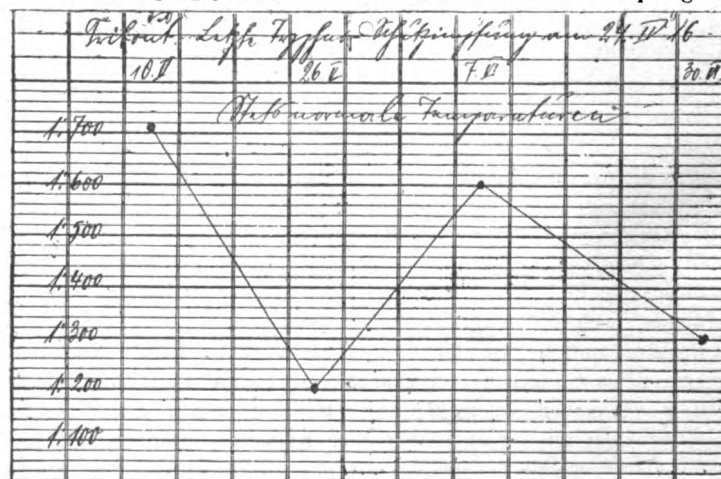 Letzte Typhus-Schutzimpfung am 27. IV 16
26 V 7. VI 30. VI.
Stets normale Temperaturen
1:700
1:600
1:500
1:400
1:300
1:200
1:100